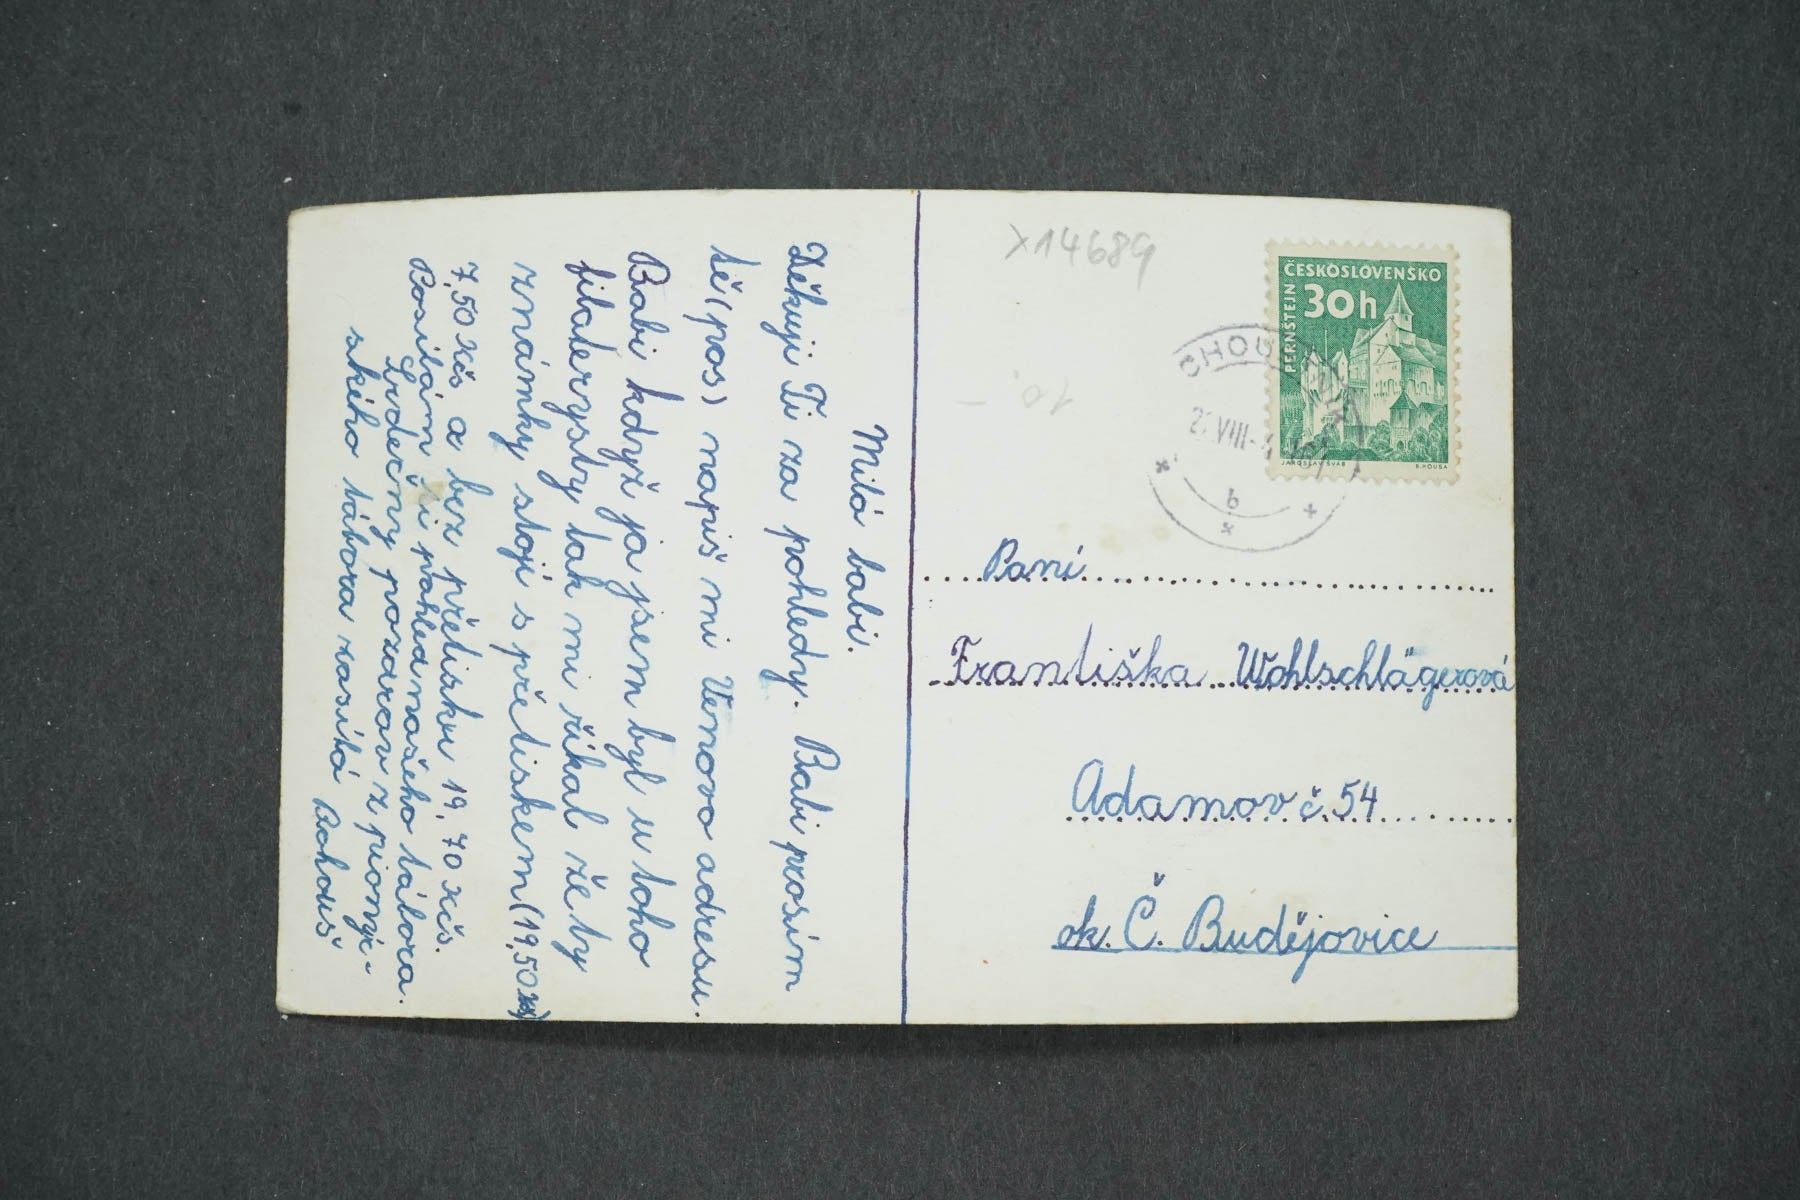 Milá babi.
Děkuji Ti za pohledy. Babi prosím
tě (pos) napiš mi Venovo adresu.
Babi když ja jsem byl u toho
filaderysty tak mi říkal že by
známky stojí s přetiskem (19,50 Kčs)
7,50 Kčs a bez přetisku 19,70 Kčs.
Posílám ti pohled našeho tábora.
Srdečný pozdrav z pionýr-
ského tábora zasílá Bohouš
X14689
10.-
ČESKOSLOVENSKO
30h
PERNŠTEJN
JAROSLAV ŠVÁB
B. HOUSA
VIII
b
Paní
Františka Wohlschlägerová
Adamov č. 54
ok. Č. Budějovice